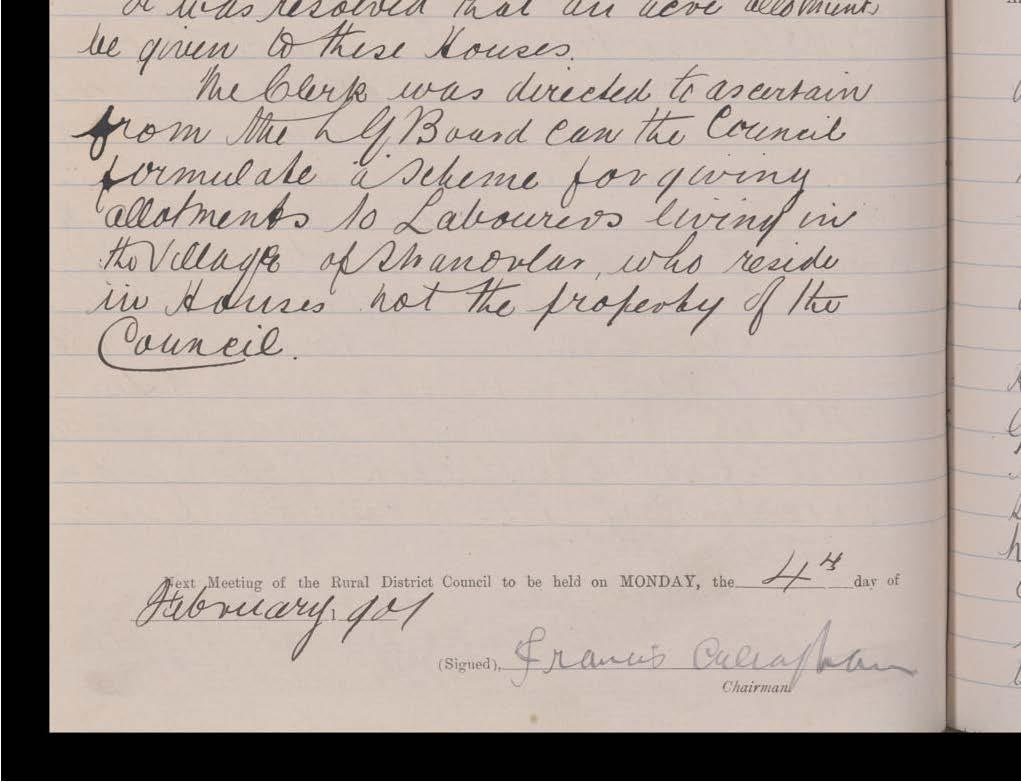 it was resolved that an acre allotment
be given to these Houses.
The Clerk was directed to ascertain
from the L G Board can the Council
formulate a Scheme for giving
allotments to Labourers living in
the Village of who reside
in Houses not the property of the
Council.
Next Meeting of the Rural District Council to be held on MONDAY, the 4th day of
February, 901
(Signed), Francis Callaghan
Chairman.